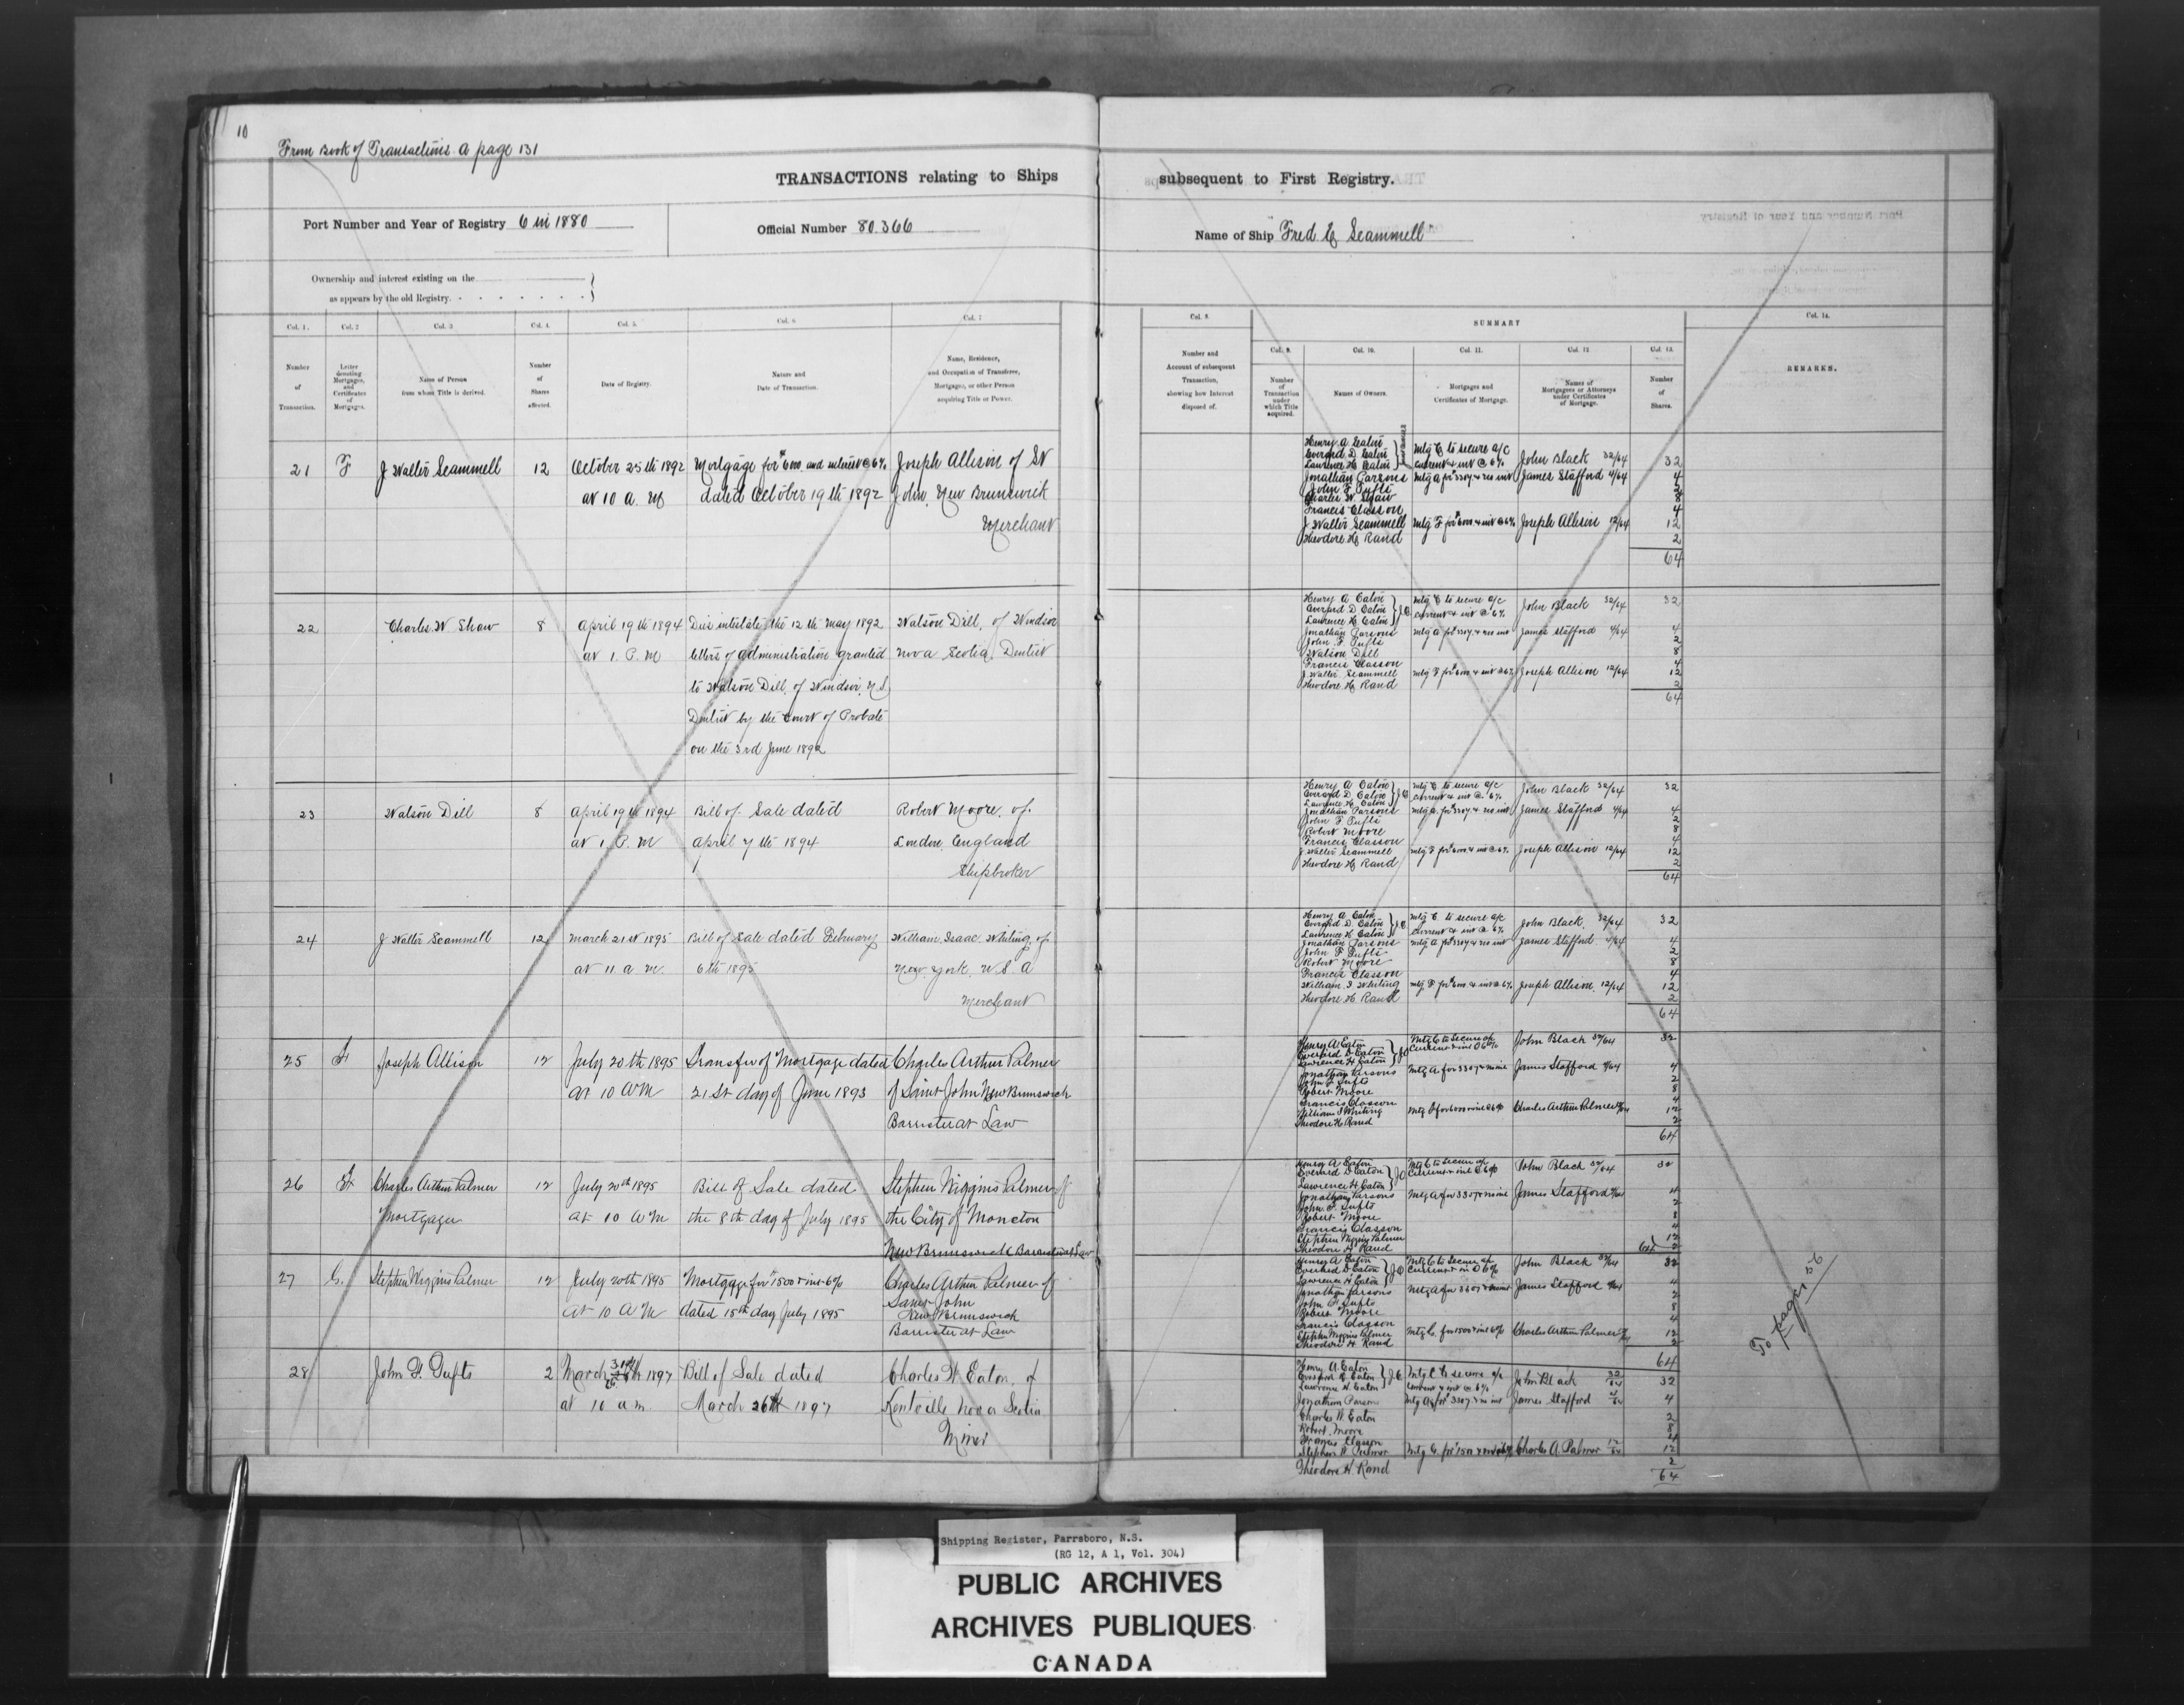 10
From Book of Transactions A page 131
TRANSACTIONS relating to Ships
Port Number and Year of Registry 6 in 1880
Official Number 80.366
Ownership and interest existing on the
as appears by the old Registry.
Col. 1.
Col. 2
Col. 3
Col. 4.
Col. 5.
Col. 6
Col. 7
Number
of
Transaction.
Letter
denoting
Mortgages,
and
Certificates
of
Mortgages.
Name of Person
from whom Title is derived.
Number
of
Shares
affected.
Date of Registry.
Nature and
Date of Transaction.
Name, Residence,
and Occupation of Transferee,
Mortgagee, or other Person
acquiring Title or Power.
21 F J Walter Scammell 12 October 25th 1892 Mortgage for $600. and interest @ 6% Joseph Allison of St
at 10 a. M dated October 19th 1892 John, New Brunswick
Merchant
22 Charles W Shaw 8 April 19th 1894 Died intestate the 12th May 1892 Watson Dill, of Windsor
at 1. P. M letters of administration granted Nova Scotia Dentist
to Watson Dill, of Windsor, N.S.
Dentist by the Court of Probate
on the 3rd June 1892
23 Watson Dill 8 April 19th 1894 Bill of Sale dated Robert Moore. of.
at 1. P. M April 7th 1894 London. England
Shipbroker
24 J Walter Scammell 12 March 21st 1895 Bill of Sale dated February William Isaac Whiting of
at 11 a m. 6th 1895 New York. U S A
Merchant
25 F Joseph Allison 12 July 20th 1895 Transfer of Mortgage dated Charles Arthur Palmer
at 10 AM 21st day of June 1893 of Saint John New Brunswick
Barrister at Law
26 F Charles Arthur Palmer 12 July 20th 1895 Bill of Sale dated Stephen Wiggins Palmer of
Mortgagee at 10 AM the 8th day of July 1895 the City of Moncton
New Brunswick Barrister at Law
27 G. Stephen Wiggins Palmer 12 July 20th 1895 Mortgage for $1500 & int 6% Charles Arthur Palmer of
at 10 AM dated 15th day July 1895 Saint John
New Brunswick
Barrister at Law
28 John F. Tufts 2 March 31st 1897 Bill of Sale dated Charles W Eaton, of
at 10 am. March 26th 1897 Kentville Nova Scotia
Miner
subsequent to First Registry.
Name of Ship "Fred E Scammell"
Col. 8.
SUMMARY
Col. 14.
Number and
Account of subsequent
Transaction,
showing how Interest
disposed of.
Col. 9.
Col. 10.
Col. 11.
Col. 12
Col. 13.
Number
of
Transaction
under
which Title
acquired.
Names of Owners.
Mortgages and
Certificates of Mortgage.
Names of
Mortgagees or Attorneys
under Certificates
of Mortgage.
Number
of
Shares.
REMARKS.
Henry A Eaton
Everard D Eaton Mtg C to secure a/c
Lawrence H Eaton current & int @ 6% John Black 32/64 32
Jonathan Parsons Mtg A for 3304 & no int James Stafford 4/64 4
John F Tufts 2
Charles W. Shaw 8
Francis Classon 4
J Walter Scammell Mtg F for $600. & int @ 6% Joseph Allison 12/64 12
Theodore H Rand 2
64
Henry A Eaton Mtg C to secure a/c
Everard D Eaton current & int @ 6% John Black 32/64 32
Lawrence H Eaton
Jonathan Parsons Mtg A for 3304 & no int James Stafford 4/64 4
John F Tufts 2
Watson Dill 8
Francis Classon 4
J Walter Scammell Mtg F for $600 & int @ 6% Joseph Allison 12/64 12
Theodore H Rand 2
64
Henry A Eaton Mtg C to secure a/c John Black 32/64 32
Everard D Eaton current & int @ 6%
Lawrence H Eaton
Jonathan Parsons Mtg A for 3304 & no int James Stafford 4/64 4
John F Tufts 2
Robert Moore 8
Francis Classon 4
J Walter Scammell Mtg F for $600 & int @ 6% Joseph Allison 12/64 12
Theodore H Rand 2
64
Henry A Eaton Mtg C to secure a/c John Black 32/64 32
Everard D. Eaton current & int @ 6%
Lawrence H Eaton
Jonathan Parsons Mtg A for 3304 & no int James Stafford 4/64 4
John F Tufts 2
Robert Moore 8
Francis Classon 4
William I Whiting Mtg F for $600. & int @ 6% Joseph Allison. 12/64 12
Theodore H Rand 2
64
Henry A Eaton Mtg C to Secure a/c John Black 32/64 32
Everard D Eaton current & int @ 6%
Lawrence H Eaton
Jonathan Parsons James Stafford 4/64 4
John F Tufts 2
Robert Moore 8
Francis Classon 4
William I Whiting Charles Arthur Palmer 12
Theodore H Rand 2
64
Henry A Eaton Mtg C to Secure a/c John Black 32/64 32
Everard D Eaton current & int @ 6%
Lawrence H Eaton
Jonathan Parsons James Stafford 4/64 4
John F. Tufts 2
Robert Moore 8
Francis Classon 4
Stephen Wiggins Palmer 12
Theodore H Rand 2
64
Henry A Eaton Mtg C to Secure a/c John Black 32/64 32
Everard D Eaton current & int @ 6%
Lawrence H Eaton
Jonathan Parsons James Stafford 4/64 4
John F Tufts 2
Robert Moore 8
Francis Classon 4
Stephen Wiggins Palmer Mtg G. for 1500 & int 6% Charles Arthur Palmer 12
Theodore H Rand 2
64
Henry A. Eaton Mtg C to secure a/c John Black 32/64 32
Everard D Eaton current & int @ 6%
Lawrence H. Eaton
Jonathan Parsons James Stafford 4/64 4
Charles W. Eaton 2
Robert Moore 8
Francis Classon 4
Stephen W Palmer Charles A. Palmer 12/64 12
Theodore H. Rand 2
64
To page 56
Shipping Register, Parrsboro, N.S.
(RG 12, A 1, Vol. 304)
PUBLIC ARCHIVES
ARCHIVES PUBLIQUES
CANADA